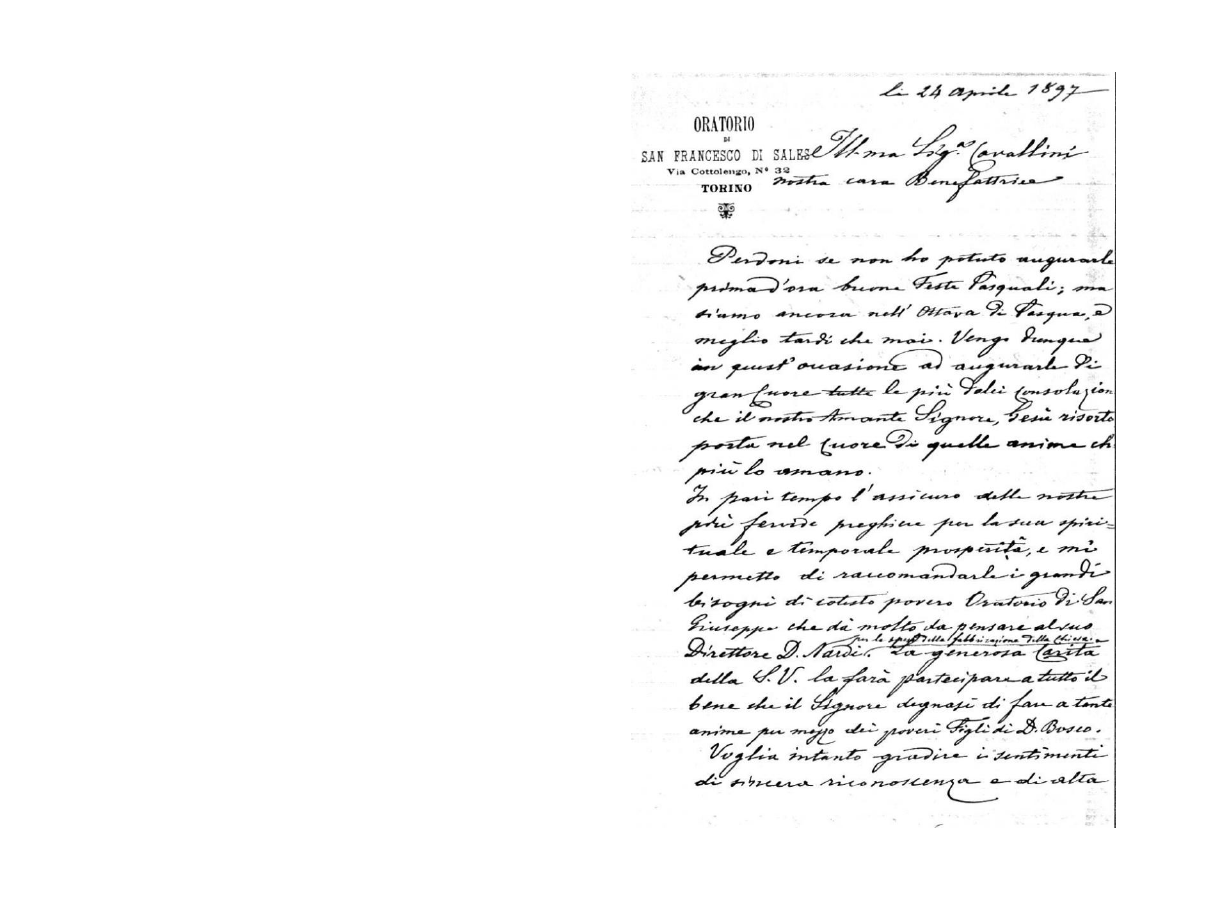 li 24 Aprile 1897
ORATORIO
DI
SAN FRANCESCO DI SALES
Via Cottolengo, N° 32
TORINO
Ill.ma Sig.ra Cavallini
nostra cara Benefattrice
Perdoni se non ho potuto augurarle
prima d'ora buone Feste Pasquali; ma
siamo ancora nell' Ottava di Pasqua, e
meglio tardi che mai. Vengo dunque
in quest' occasione ad augurarle di
gran Cuore tutte le più dolci consolazion
che il nostro Amante Signore, Gesù risorto
porta nel Cuore di quelle anime ch
più lo amano.
In pari tempo l'assicuro delle nostre
più fervide preghiere per la sua spiri=
tuale e temporale prosperità, e mi
permetto di raccomandarle i grandi
bisogni di cotesto povero Oratorio di San
Giuseppe che dà molto da pensare al suo
per le spese della fabbricazione della Chiesa
Direttore D. Nardi. La generosa Carità
della S.V. la farà partecipare a tutto il
bene che il Signore degnasi di fare a tante
anime per mezzo dei poveri Figli di D. Bosco.
Voglia intanto gradire i sentimenti
di sincera riconoscenza e di alta